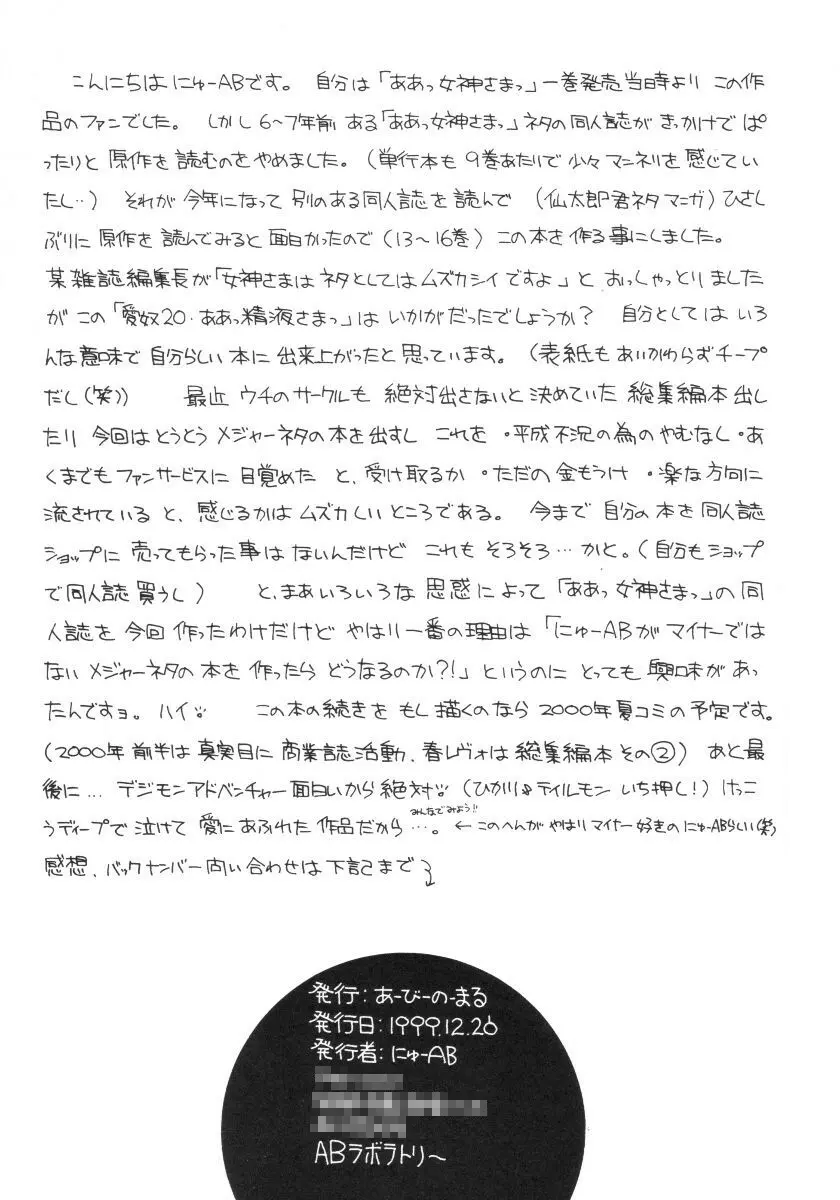 こんにちは にゅーABです。 自分は「ああっ女神さまっ」一巻発売当時より この作
品のファンでした。 しかし 6〜7年前 ある「ああっ女神さまっ」ネタの同人誌が きっかけで ぱ
ったりと 原作を 読むのを やめました。(単行本も 9巻あたりで 少々 マンネリを 感じてい
たし‥) それが 今年になって 別のある同人誌を 読んで (仙太郎君ネタ マンガ)ひさし
ぶりに 原作を 読んでみると 面白かったので(13〜16巻)この本を作る事にしました。
某雑誌編集長が「女神さまは ネタとしては ムズカシイですよ」と おっしゃっとりました
が この「愛奴20・ああっ精液さまっ」は いかがだったでしょうか? 自分としては いろ
んな意味で 自分らしい 本に 出来上がったと 思っています。(表紙も あいかわらず チープ
だし(笑)) 最近 ウチのサークルも 絶対出さないと 決めていた 総集編本 出し
たり 今回は とうとう メジャーネタの 本を 出すし これを ・平成不況の為の やむなし ・あ
くまでも ファンサービスに 目覚めた と、受け取るか ・ただの 金もうけ ・楽な方向に
流されている と、感じるかは ムズカしい ところである。 今まで 自分の 本を 同人誌
ショップに 売ってもらった事は ないんだけど これも そろそろ… かと。(自分も ショップ
で同人誌 買うし) と、まあ いろいろな 思惑によって「ああっ女神さまっ」の 同
人誌を 今回 作ったわけだけど やはり 一番の 理由は「にゅーABが マイナーでは
ない メジャーネタの 本を 作ったら どうなるのか?!」というのに とっても 興味が あっ
たんですョ。ハイ。 この本の 続きを もし 描くのなら 2000年夏コミの予定です。
(2000年 前半は 真実目に 商業誌活動、春レヴォは 総集編本 その②) あと最
後に… デジモンアドベンチャー 面白いから 絶対!!(ひかり&テイルモン いち押し!) けっこ
うディープで 泣けて 愛に あふれた 作品だから …。 ← このへんが やはり マイナー好きの にゅーABらしい(笑)
みんなでみよう!!
感想、バックナンバー 問い合わせは 下記まで
発行:あーびーのーまる
発行日:1999.12.26
発行者:にゅーAB
ABラボラトリ〜